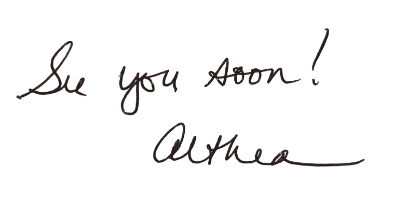 See you soon!
Althea